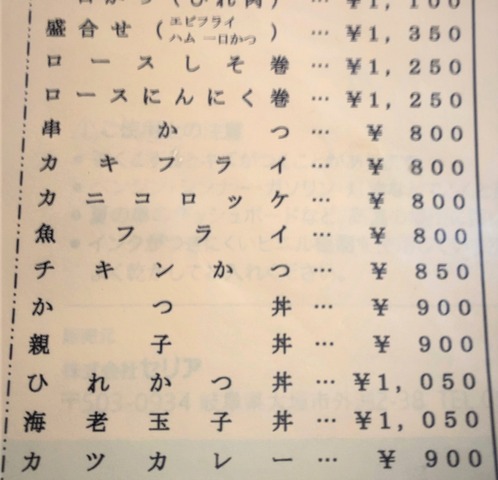 ¥1,100
盛合せ (エビフライ ハム 一口かつ) … ¥1,350
ロースしそ巻 … ¥1,250
ロースにんにく巻 … ¥1,250
串かつ … ¥800
カキフライ … ¥800
カニコロッケ … ¥800
魚フライ … ¥800
チキンかつ … ¥850
かつ丼 … ¥900
親子丼 … ¥900
ひれかつ丼 … ¥1,050
海老玉子丼 … ¥1,050
カツカレー … ¥900